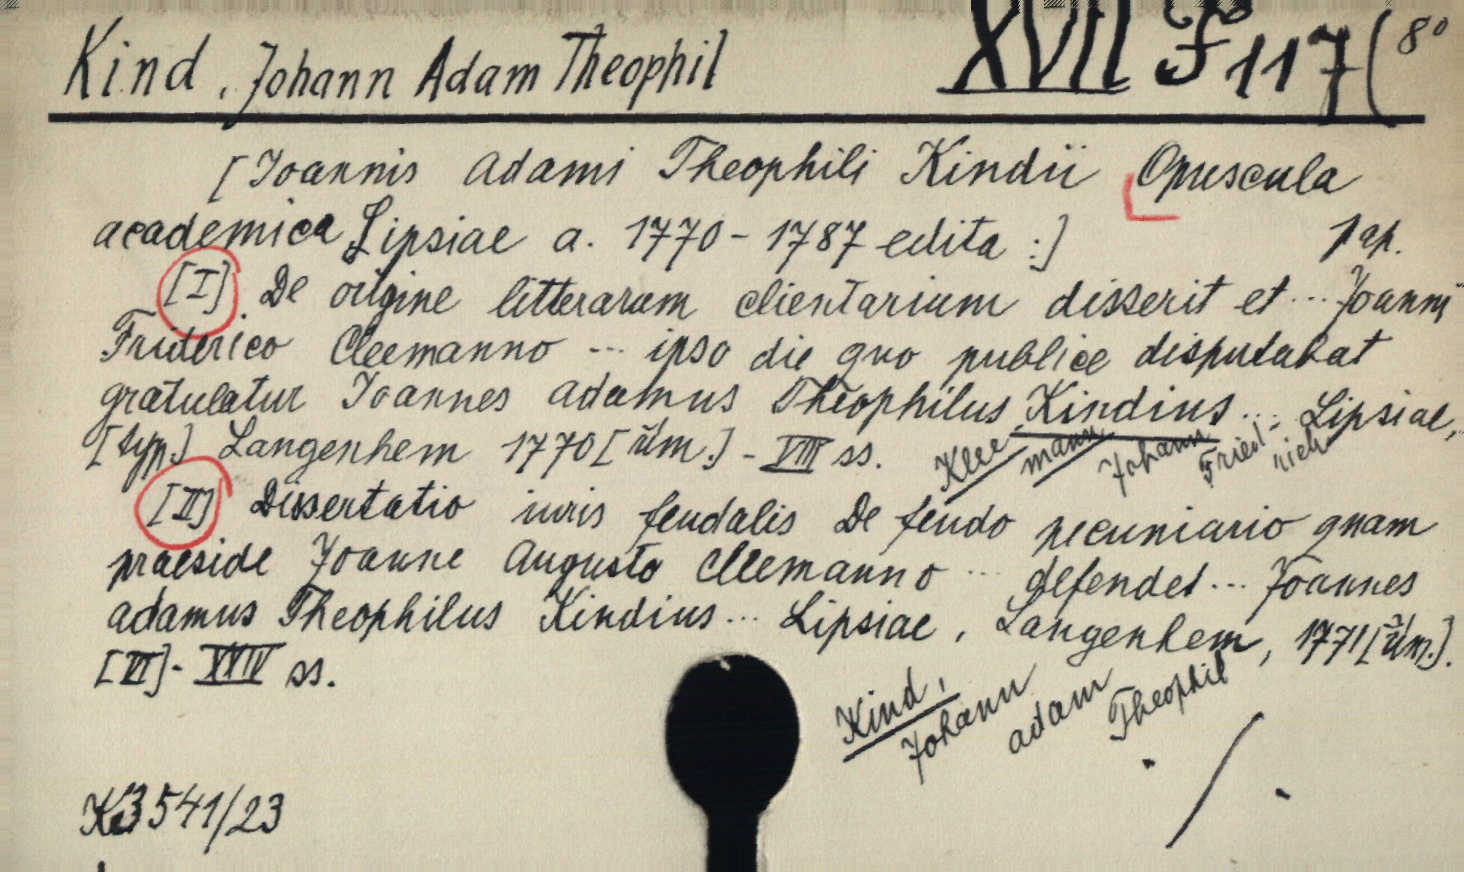 Kind, Johann Adam Theophil XVII F 117 (8°
[Joannis Adami Theophili Kindii Opuscula
academica Lipsiae a. 1770-1787 edita :] pap.
[I] De origine litterarum clientarium disserit et ... Joanni
Friderico Cleemanno ... ipso die quo publice disputabat
gratulatur Joannes Adamus Theophilus Kindius ... Lipsiae,
[typ.] Langenhem 1770 [űm.] - VIII ss. Kleemann Johann Friedrich
[II] Dissertatio iuris feudalis De feudo pecuniario quam
praeside Joanne Augusto Cleemanno ... defendet ... Joannes
Adamus Theophilus Kindius ... Lipsiae, Langenhem, 1771 [űm.].
[VI]- XXIV ss.
Kind, Johann Adam Theophil
3541/23